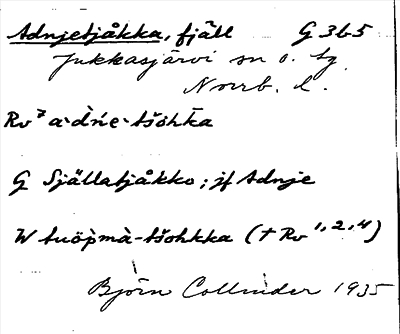 Adnjetjåkka, fjäll G 3b5
Jukkasjärvi sn o. tg
Norrb. l.
Rv⁷ a·d̀ńe·tšoh̄ka
G Själlatjåkko; jf Adnje
W tuöpmà-tšohkka (+ Rv ¹,²,⁴)
Björn Collinder 1935